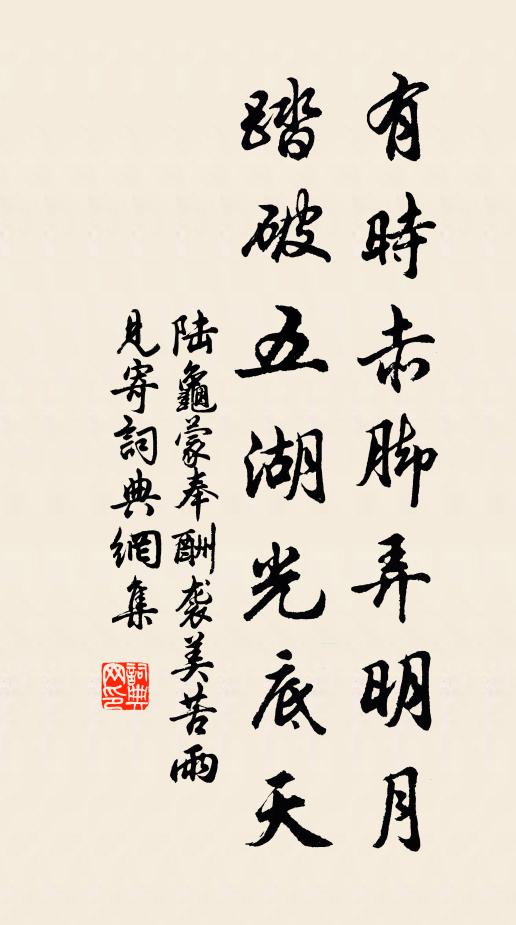 有時赤脚弄明月
踏破五湖光底天
陆龜蒙奉酬袭美苦雨
見寄詞典網集
詞典
网印